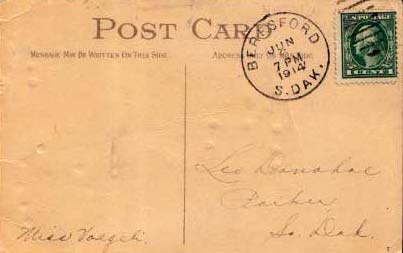 POST CARD
MESSAGE MAY BE WRITTEN ON THIS SIDE.
ADDRESS ONLY ON THIS SIDE.
BERESFORD
JUN
7 PM
1914
S. DAK.
U.S. POSTAGE
1 CENT 1
Leo Donahoe
Parker
So. Dak.
Miss Voegeli.